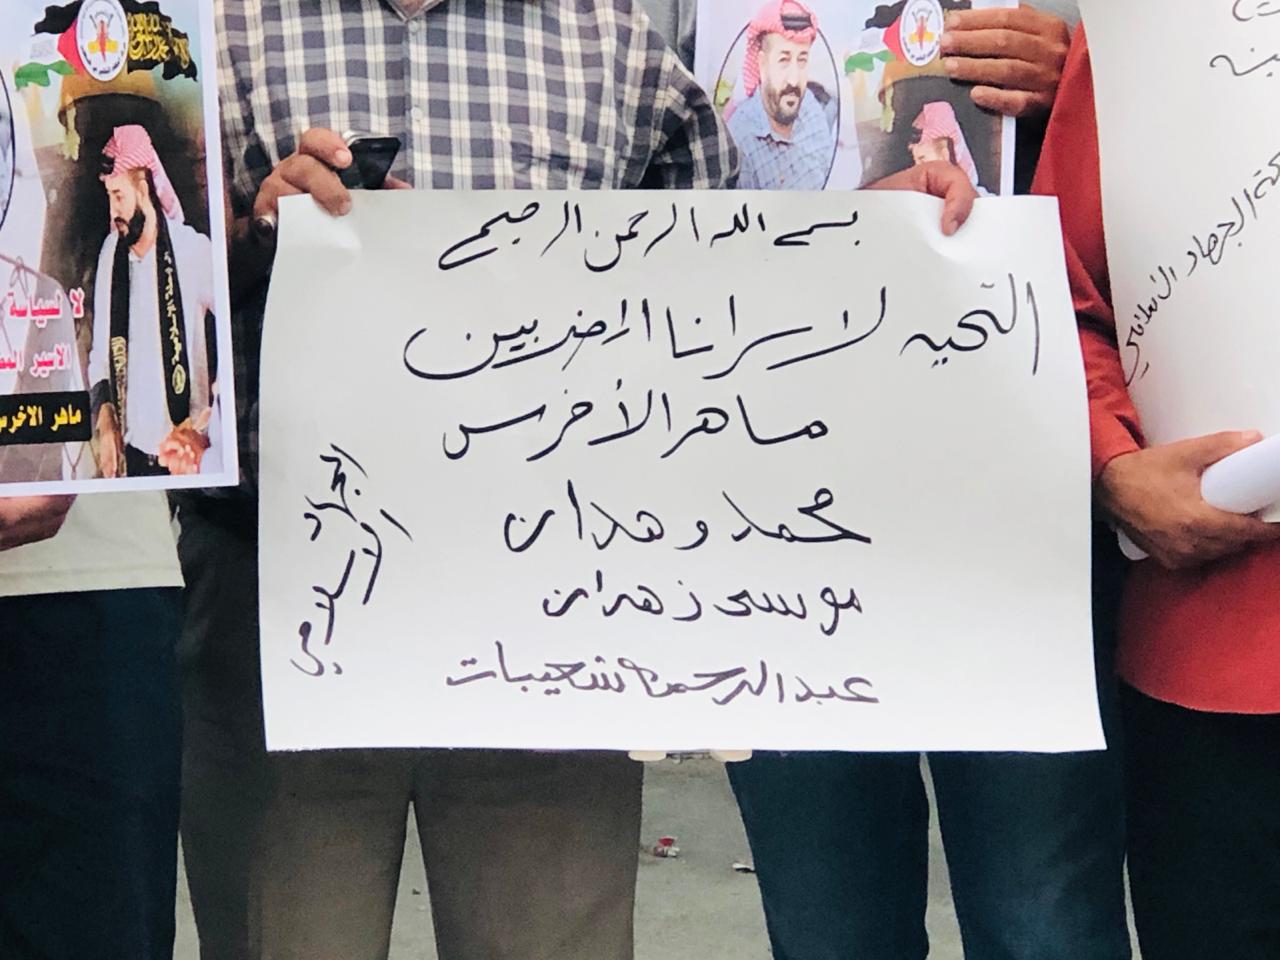 بسم الله الرحمن الرحيم
التحيه لاسرانا المضربين
ماهر الأخرس
محمد وهدان
موسى زهران
عبد الرحمن شعيبات
الجهاد الاسلامي
لا لسياسة
الاسير
ماهر الاخرس
الجهاد الاسلامي